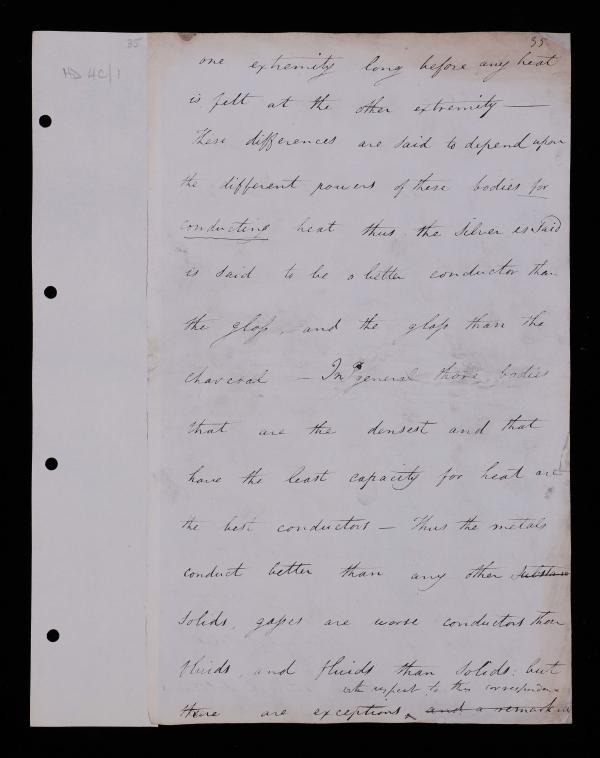 35
35
HD 4C/1
one extremity long before any heat
is felt at the other extremity —
These differences are said to depend upon
the different powers of these bodies for
conducting heat thus the silver is said
is said to be a better conductor than
the glaſs, and the glaſs than the
charcoal — In general those bodies
that are the densest and that
have the least capacity for heat are
the best conductors — Thus the metals
conduct better than any other substance
solids, gaſses are worse conductors than
fluids, and fluids than solids: but
with respect to this correspondence
there are exceptions, and a remark